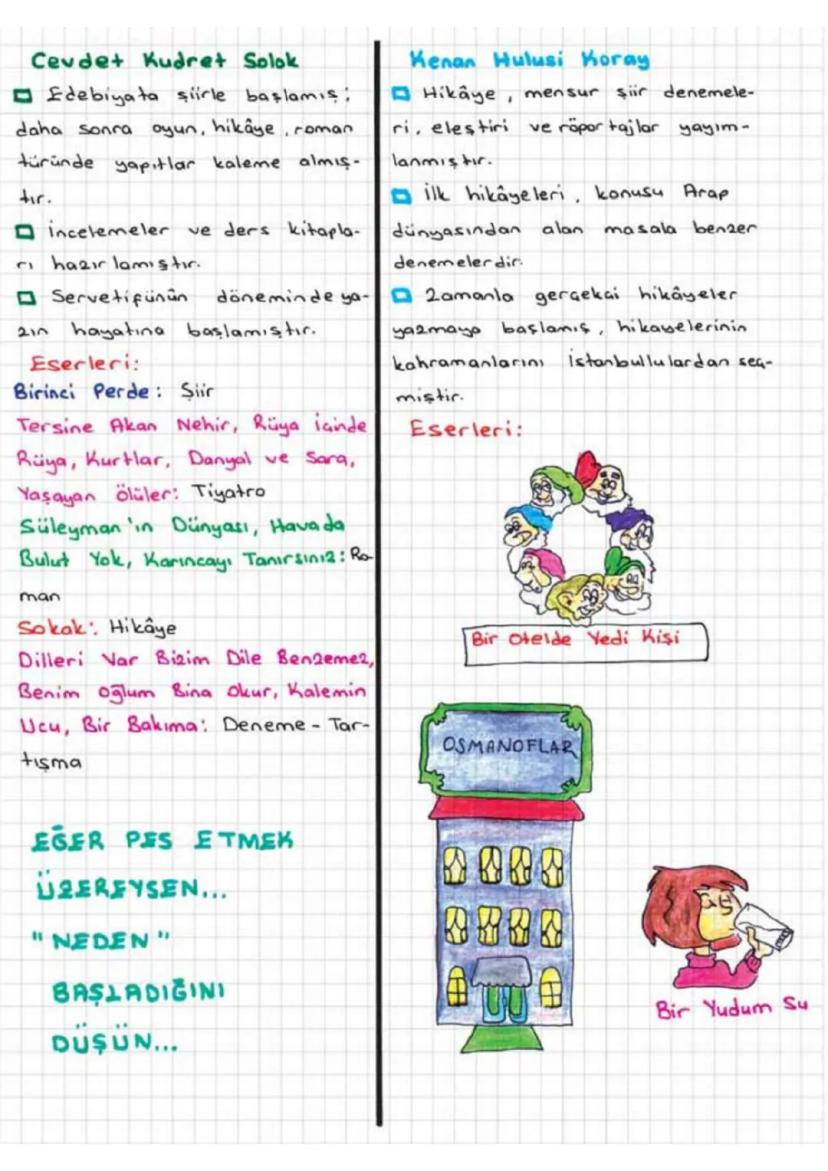 Cevdet Kudret Solok
Edebiyata şiirle başlamış;
daha sonra oyun, hikâye, roman
türünde yapıtlar kaleme almış-
tır.
İncelemeler ve ders kitapla-
rı hazırlamıştır.
Servetifünûn döneminde ya-
zın hayatına başlamıştır.
Eserleri:
Birinci Perde: Şiir
Tersine Akan Nehir, Rüya İçinde
Rüya, Kurtlar, Danyal ve Sara,
Yaşayan Ölüler: Tiyatro
Süleyman'ın Dünyası, Havada
Bulut Yok, Karıncayı Tanırsınız: Ro-
man
Sokak: Hikâye
Dilleri Var Bizim Dile Benzemez,
Benim Oğlum Bina Okur, Kalemin
Ucu, Bir Bakıma: Deneme - Tar-
tışma
EĞER PES ETMEK
ÜZEREYSEN...
"NEDEN"
BAŞLADIĞINI
DÜŞÜN...
Kenan Hulusi Koray
Hikâye, mensur şiir denemele-
ri, eleştiri ve röportajlar yayım-
lanmıştır.
İlk hikâyeleri, konusu Arap
dünyasından alan masala benzer
denemelerdir.
Zamanla gerçekçi hikâyeler
yazmaya başlamış, hikayelerinin
kahramanlarını İstanbullulardan seç-
miştir.
Eserleri:
Bir Otelde Yedi Kişi
OSMANOFLAR
Bir Yudum Su